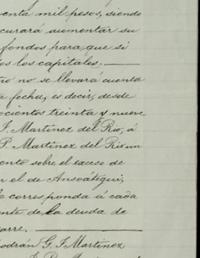 enta mil pesos, siendo
curará aumentar su
fondos para que si
os los capitales.
no no se llevará cuenta
a fecha, es decir, desde
ocientos treinta y nueve
F. Martinez del Rio, á
P. Martinez del Rio un
ento sobre el exceso de
n el de Ansoátegui,
e corresponda á cada
nte de la deuda de
arre.
odrán G. F. Martinez